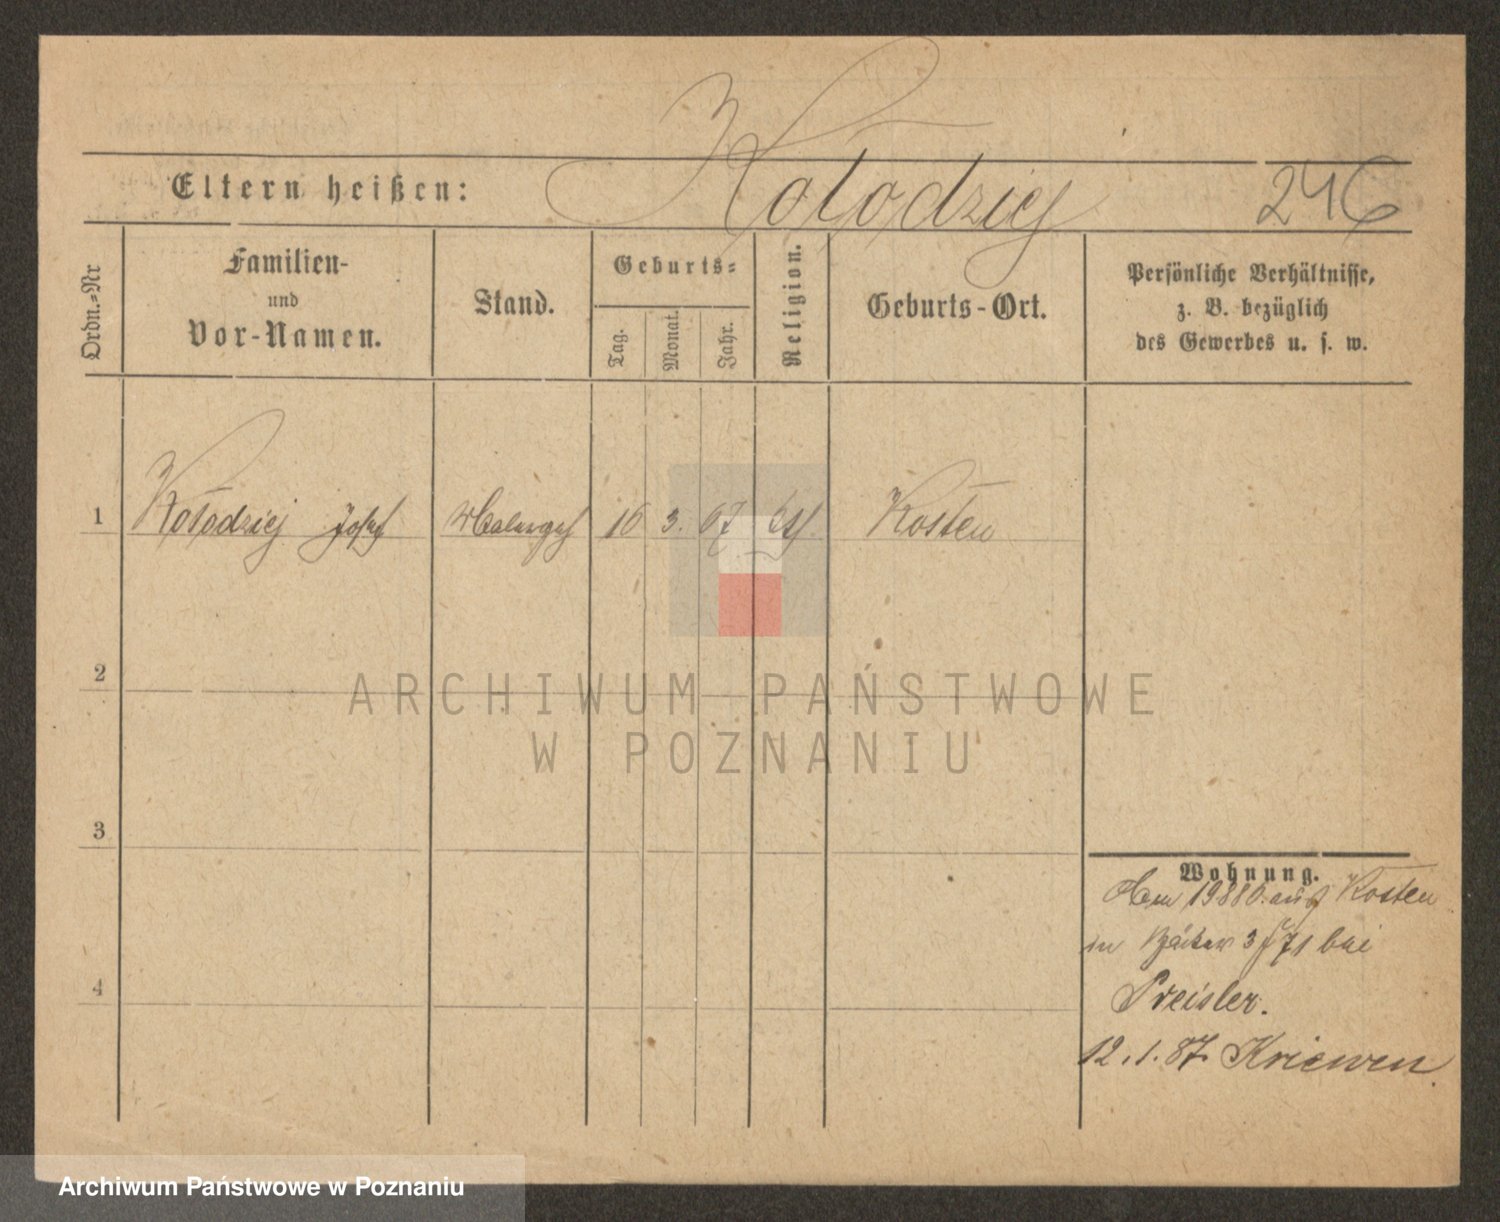 Eltern heißen: Kołodziej 246
Ordn.=Nr
Familien-
und
Vor-Namen.
Stand.
Geburts=
Tag.
Monat.
Jahr.
Religion.
Geburts-Ort.
Persönliche Verhältnisse,
z. B. bezüglich
des Gewerbes u. s. w.
1 Kołodziej Josef Malergeh 16 3. 67 Kosten
2
3
4
Wohnung.
aus Kosten
in Bäcker 71 bei
Preisler.
12.1.87 Kriewen
ARCHIWUM PAŃSTWOWE
W POZNANIU
Archiwum Państwowe w Poznaniu